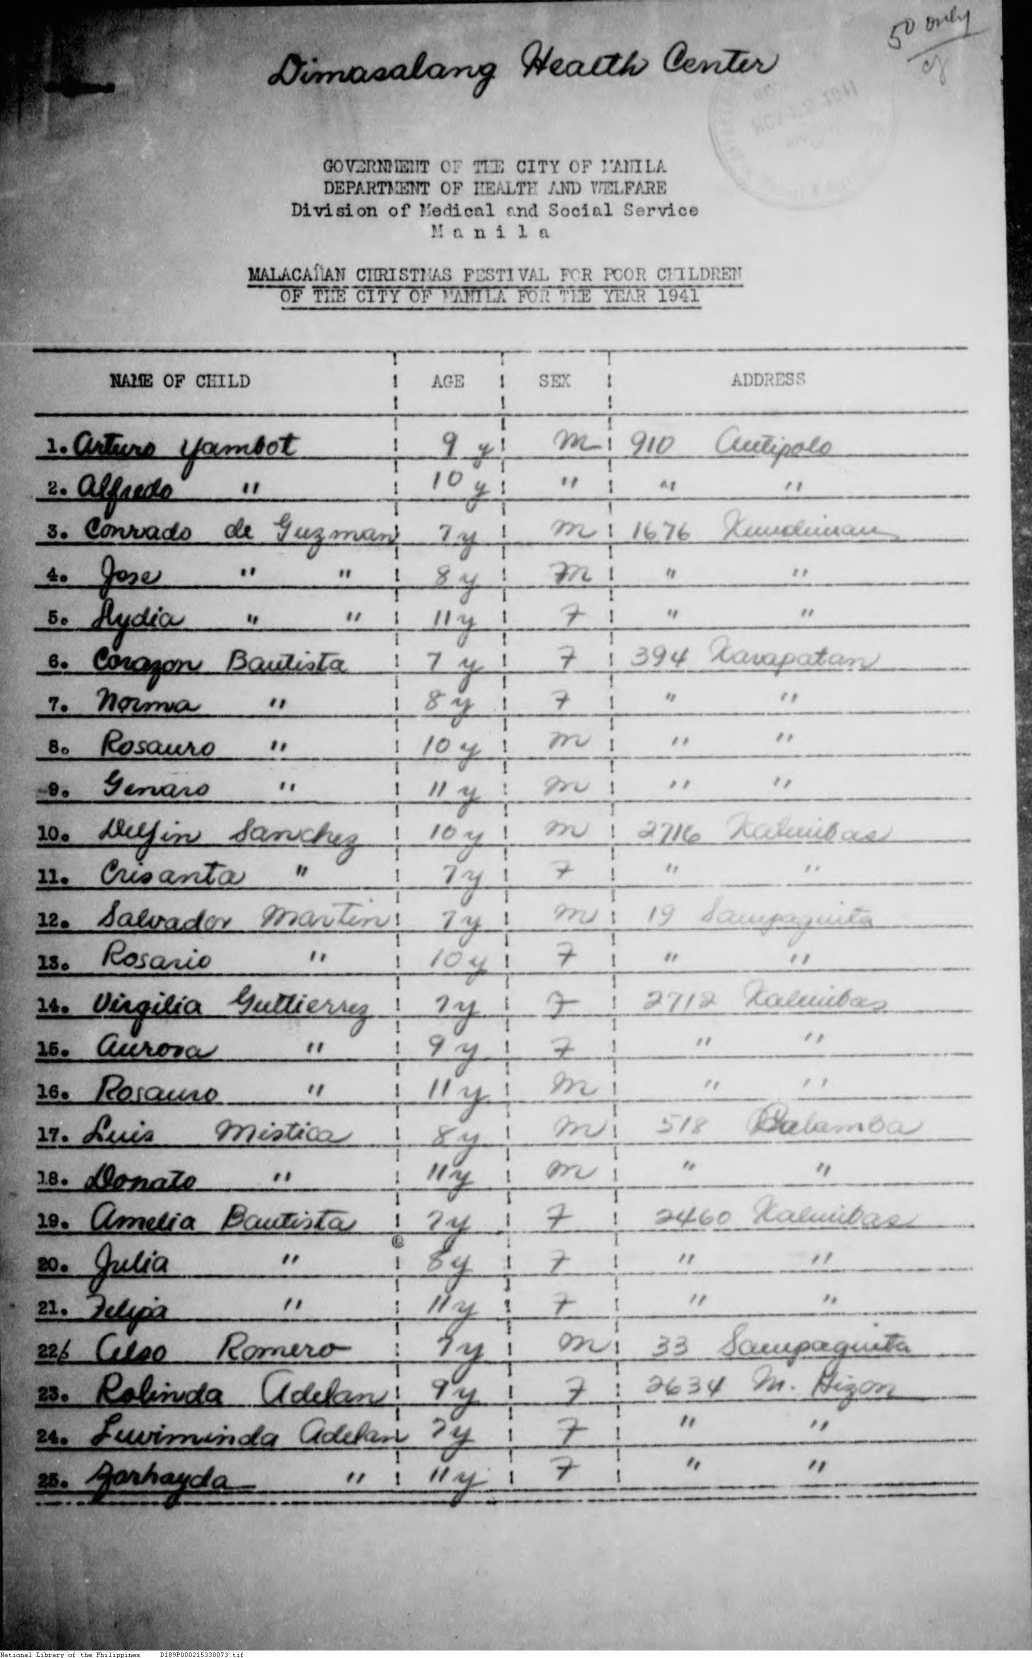 50 only
Dimasalang Health Center
GOVERNMENT OF THE CITY OF MANILA
DEPARTMENT OF HEALTH AND WELFARE
Division of Medical and Social Service
M a n i l a
MALACAÑAN CHRISTMAS FESTIVAL FOR POOR CHILDREN
OF THE CITY OF MANILA FOR THE YEAR 1941
NAME OF CHILD AGE SEX ADDRESS
1. Arturo Yambot 9 y M 910 Antipolo
2. Alfredo " 10 y " " "
3. Conrado de Guzman 7 y M 1676 Kundiman
4. Jose " " 8 y M " "
5. Lydia " " 11 y F " "
6. Corazon Bautista 7 y F 394 Karapatan
7. Norma " 8 y F " "
8. Rosauro " 10 y M " "
9. Genaro " 11 y M " "
10. Delfin Sanchez 10 y M 2716 Kalimbas
11. Crisanta " 7 y F " "
12. Salvador Martin 7 y M 19 Sampaguita
13. Rosario " 10 y F " "
14. Virgilia Guttierrez 7 y F 2712 Kalimbas
15. Aurora " 9 y F " "
16. Rosauro " 11 y M " "
17. Luis Mistica 8 y M 518 Calamba
18. Donato " 11 y M " "
19. Amelia Bautista 7 y F 2460 Kalimbas
20. Julia " 8 y F " "
21. Felipa " 11 y F " "
22/ Celso Romero 7 y M 33 Sampaguita
23. Rolinda Adelan 9 y F 2634 M. Hizon
24. Luviminda Adelan 7 y F " "
25. Zorhayda " 11 y F " "
National Library of the Philippines D189P000215330073.tif